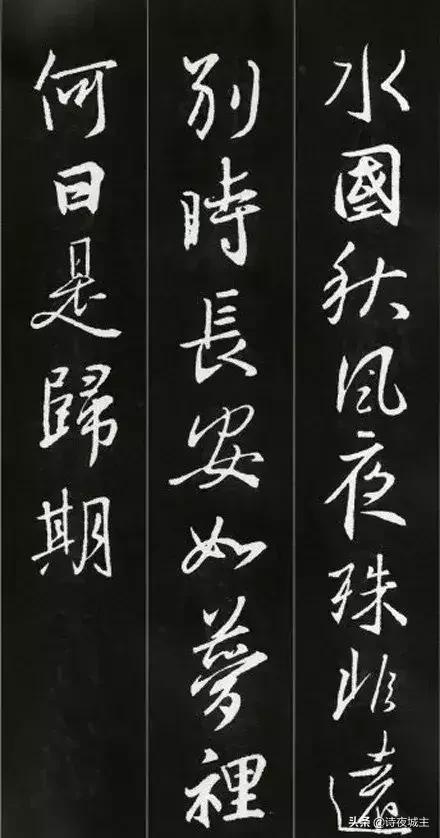 水國秋風夜殊非遠
別時長安如夢裡
何日是歸期
头条 @诗夜城主